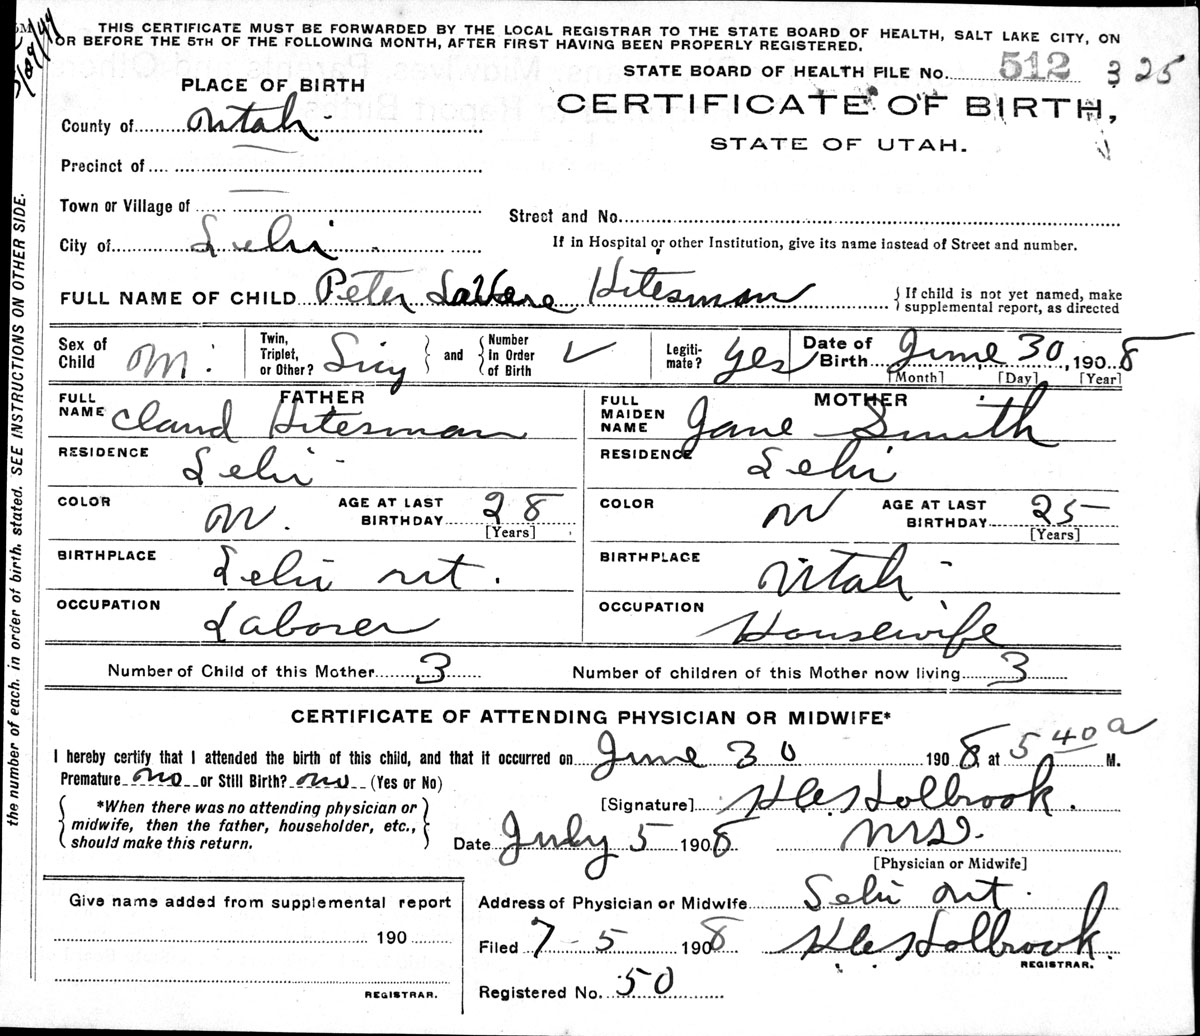 THIS CERTIFICATE MUST BE FORWARDED BY THE LOCAL REGISTRAR TO THE STATE BOARD OF HEALTH, SALT LAKE CITY, ON
OR BEFORE THE 5TH OF THE FOLLOWING MONTH, AFTER FIRST HAVING BEEN PROPERLY REGISTERED.
STATE BOARD OF HEALTH FILE No. 512 325
PLACE OF BIRTH
CERTIFICATE OF BIRTH,
STATE OF UTAH.
County of Utah
Precinct of
Town or Village of
Street and No.
City of Lehi
If in Hospital or other Institution, give its name instead of Street and number.
FULL NAME OF CHILD Peter LaVere Hitesman
If child is not yet named, make
supplemental report, as directed
Sex of Child M. Twin, Triplet, or Other? and Number in Order of Birth Legitimate? Yes Date of Birth June 30, 1908
[Month] [Day] [Year]
FATHER MOTHER
FULL NAME Claud Hitesman FULL MAIDEN NAME Jane Smith
RESIDENCE Lehi RESIDENCE Lehi
COLOR W. AGE AT LAST BIRTHDAY 28 [Years] COLOR W AGE AT LAST BIRTHDAY 25 [Years]
BIRTHPLACE Lehi Ut. BIRTHPLACE Utah
OCCUPATION Laborer OCCUPATION Housewife
Number of Child of this Mother 3 Number of children of this Mother now living 3
CERTIFICATE OF ATTENDING PHYSICIAN OR MIDWIFE*
I hereby certify that I attended the birth of this child, and that it occurred on June 30 1908, at 5 40 a M.
Premature no or Still Birth? no (Yes or No)
*When there was no attending physician or
midwife, then the father, householder, etc.,
should make this return.
[Signature] Holbrook.
Date July 5 1908
[Physician or Midwife]
Give name added from supplemental report
190
REGISTRAR.
Address of Physician or Midwife Lehi Ut.
Filed 7-5 1908 Holbrook.
REGISTRAR.
Registered No. 50
the number of each, in order of birth, stated. SEE INSTRUCTIONS ON OTHER SIDE.